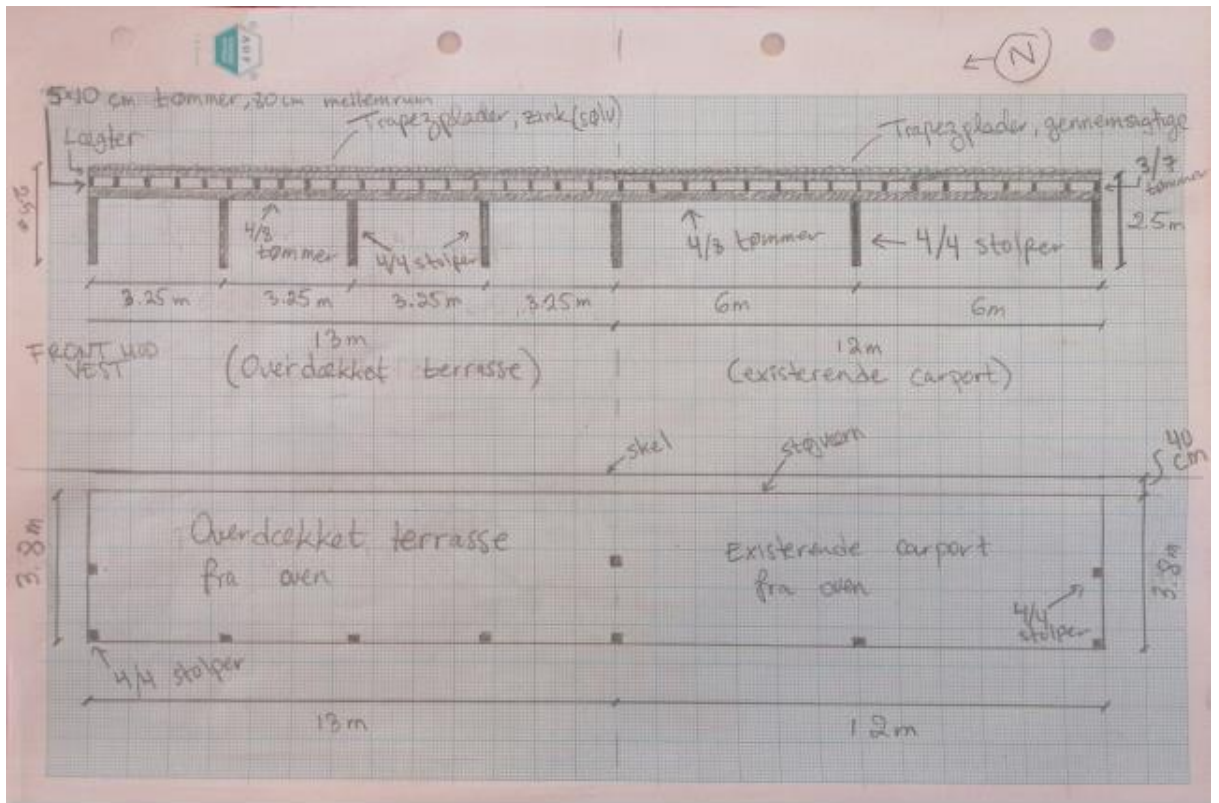 N
5x10 cm tømmer, 80 cm mellemrum
Lægter
Trapezplader, zink (sølv)
Trapezplader, gennemsigtige
3/7
tømmer
2.5m
4/8
tømmer
4/4 stolper
4/8 tømmer
4/4 stolper
2.5m
3.25m
3.25m
3.25m
3.25m
6m
6m
13m
12m
FRONT MOD
VEST
(Overdækket terrasse)
(existerende carport)
skel
støjværn
40
cm
3.8m
Overdækket terrasse
fra oven
Existerende carport
fra oven
4/4
stolper
3.8m
4/4 stolper
13m
12m